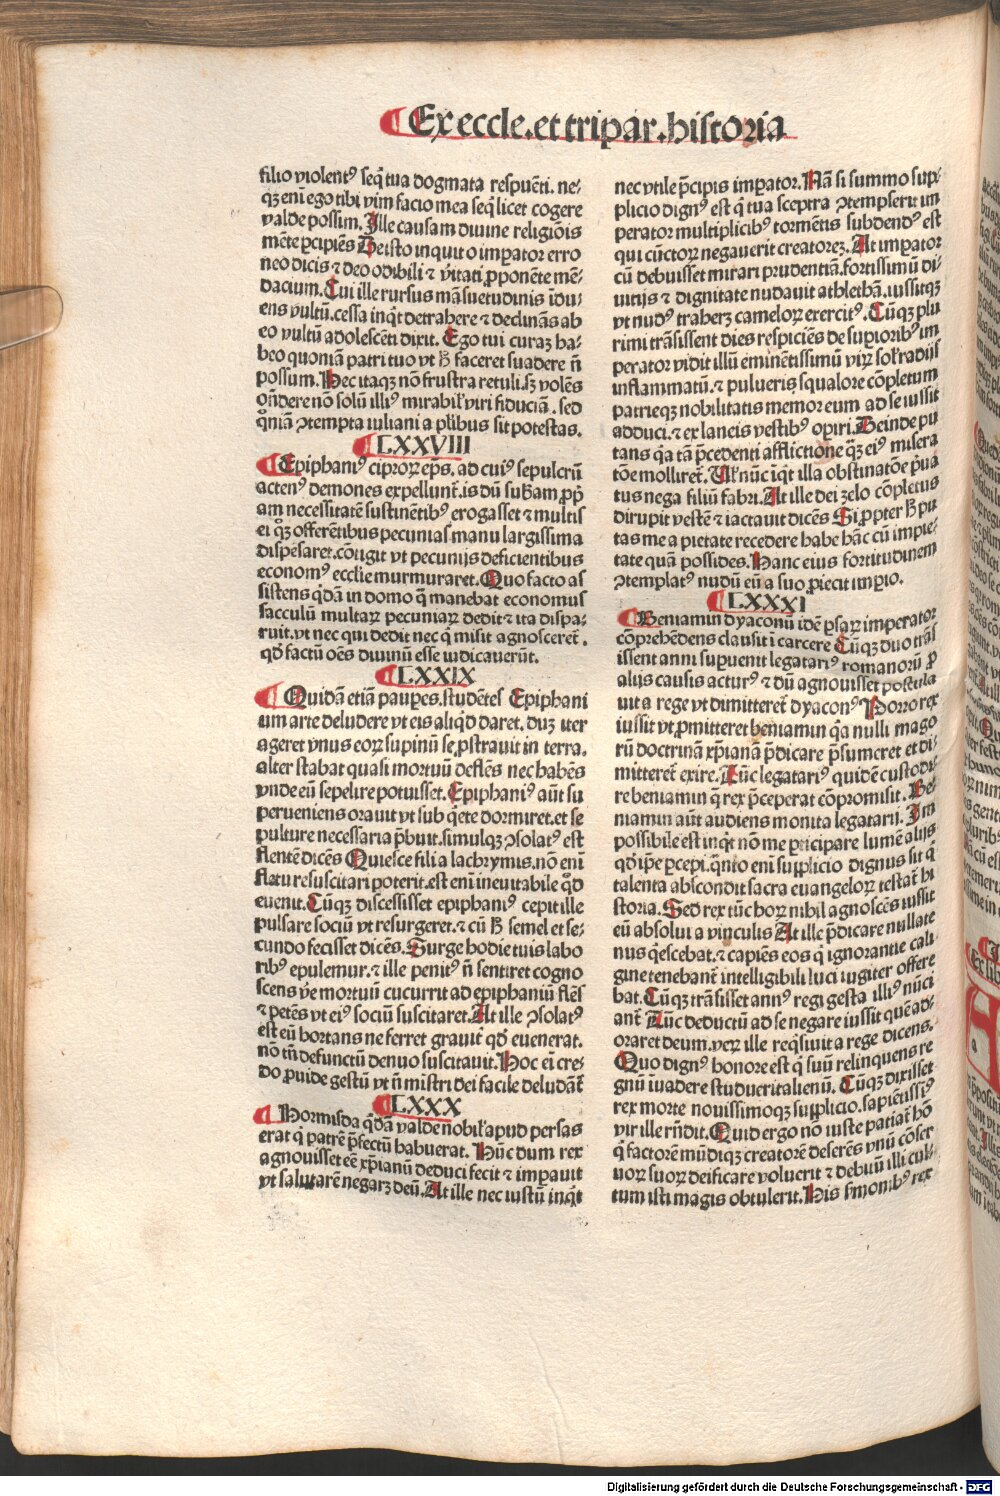 Ex eccle. et tripar. historia
filio violentꝰ seq̄ tua dogmata respuēti. ne⸗
qꝫ eni ego tibi vim facio mea seq̄ licet cogere
valde possim. Ille causam diuine religiōis
mēte ꝑcipiēs De isto inquit o imꝑator erro
neo dicis ⁊ deo odibili ⁊ v̓itati ꝓponēte mē⸗
dacium. Cui ille rursus māsuetudinis īdu⸗
ens vultū. cessa inq̇t detrahere ⁊ declināsab
eo vultū adolescēti dixit. Ego tui curaꝫ ha⸗
beo quoniam patri tuo vt ꜧ faceret suadere n̄
possum. Hec itaqꝫ nō frustra retuli. sꝫ volēs
on̄dere nō solū illiꝰ mirabil̓ viri fiduciā. sed
qm̄iā ꝯtempta iuliani a plibus sit potestas.
LXXVIII
Epiphaniꝰ cipriorꝝ ep̄s. ad cuiꝰ sepulcrū
actenꝰ demones expellunt̄. is dū sub̄am ꝓp̄
am necessitatē sustinētibꝰ erogasset ⁊ multis
ei qꝫ offerētibus pecunias manu largissima
dispēsaret. cōtigit vt pecunijs deficientibus
economꝰ ecclie murmuraret. Quo facto as
sistens q̇dā in domo q̄ manebat economus
sacculū multarꝝ pecuniarꝝ dedit ⁊ ita dispa⸗
ruit. vt nec qui dedit nec q̄ misit agnosceret̄.
qd̓ factū oēs diuinū esse iudicauerūt.
LXXIX
Quidā etiā pauꝑes. studētes Epiphani
um arte deludere vt eis aliqd̓ daret. duꝫ iter
ageret vnus eorꝝ supinū se ꝓstrauit in terra.
alter stabat quasi mortuū deflēs nec habēs
vnde eū sepelire potuisset. Epiphaniꝰ aūt su
perueniens orauit vt sub q̇ete dormiret. et se
pulture necessaria p̄buit. simulqꝫ ꝯsolatꝰ est
flentē dicēs Quiesce fili a lachrymis. nō eni
flatu resuscitari poterit. est eni ineuitabile qd̓
euenit. Cūqꝫ discessisset epiphaniꝰ cepit ille
pulsare sociū vt resurgeret. ⁊ cū ꜧ semel et se⸗
cundo fecisset dicēs. Surge hodie tuis labo
ribꝰ epulemur. ⁊ ille penitꝰ n̄ sentiret cogno
scens v̓e mortuū cucurrit ad epiphaniū flēs
⁊ petēs vt eiꝰ sociū suscitaret. At ille ꝯsolatꝰ
est eū hortans ne ferret grauit̓ qd̓ euenerat.
nō tn̄ defunctū denuo suscitauit. Hoc ei cre⸗
do ꝓuide gestū vt n̄ mistri dei facile deludāt̄
LXXX
Hormisda q̇dā valde nobil̓ apud persas
erat q̇ patrē p̄fectū habuerat. Hūc dum rex
agnouisset eē xp̄ianū deduci fecit ⁊ imꝑauit
vt salutarē negarꝫ deū. At ille nec iustū inq̇t
nec vtile p̄cipis imꝑator. Nā si summo sup⸗
plicio dignꝰ est q̇ tua sceptra ꝯtempserit im
perator multiplicibꝰ tormētis subdendꝰ est
qui cūctorꝝ negauerit creatoreꝫ. At imꝑator
cū debuisset mirari prudentiā. fortissimū di⸗
uitijs ⁊ dignitate nudauit athletḥā. iussitqꝫ
vt nudꝰ traherꝫ camelorꝝ exercitꝰ. Cūqꝫ plu
rimi trāsissent dies respiciēs de suꝑioribꝰ im
perator vidit illū eminētissimū virꝝ sol̓ radijs
inflammatū. ⁊ pulueris squalore cōpletum
patrieqꝫ nobilitatis memor eum ad se iussit
adduci. ⁊ ex laneis vestibꝰ oꝑiri. Deinde pu
tans q̇a tā p̄cedenti afflictione qꝫ eiꝰ misera
tōe molliret̄. Vl̓ nūc īq̇t illa obstinatōe p̄ua
tus nega filiū fabri. At ille dei zelo cōpletus
dirupit vestē ⁊ iactauit dicēs Si ꝓpter ꜧ pu
tas me a pietate recedere habe hāc cū impie⸗
tate quā possides. Hanc eius fortitudinem
ꝯtemplatꝰ nudū eū a suo ꝓiecit imꝑio.
LXXXI
Beniamin dyaconū idē ꝑsarꝝ imperator
cōprehēdens clausit ī carcere Cūqꝫ duo trās
issent anni suꝑuenit legatariꝰ romanorū ꝓ
alijs causis acturꝰ ⁊ dū agnouisset postula
uit a rege vt dimitteret̄ dyaconꝰ Porro rex
iussit vt ꝓmitteret beniamin q̇a nulli mago
rū doctrinā xp̄ianā p̄dicare p̄sumeret et di⸗
mitteret̄ exire. Tūc legatariꝰ quidē custodi⸗
re beniamin q̄ rex p̄ceperat cōpromisit. Be⸗
niamin aūt audiens monita legatarii. Im
possibile est inq̇t nō me ꝑticipare lumē alijs
qd̓ ip̄e ꝑcepi. q̄nto eni supplicio dignus sit q̇
talenta abscondit sacra euangelorꝝ testat̄ hi
storia. Sed rex tūc horꝝ nihil agnoscēs iussit
eū absolui a vinculis At ille p̄dicare nullate
nus q̇escebat. ⁊ capiēs eos q̇ ignorantie cali
gine tenebant̄ intelligibili luci iugiter offere
bat. Cūqꝫ trāsisset annꝰ regi gesta illiꝰ nūci
ant̄ Tūc deductū ad se negare iussit quē ad⸗
oraret deum. verꝝ ille req̇siuit a rege dicens.
Quo dignꝰ honore est q̇ suū relinquens re
gnū īuadere studuerit alienū. Cūqꝫ dixisset
rex morte nouissimoqꝫ supplicio. sapiētissiꝰ
vir ille rn̄dit. Quid ergo nō iuste patiat̄ hō
q̇ factorē mūdiqꝫ creatorē deserēs vnū cōser
uorꝝ suorꝝ deificare voluerit ⁊ debitū illi cul⸗
tum isti magis obtulerit. His sermonibꝰ rex
Digitalisierung gefördert durch die Deutsche Forschungsgemeinschaft - DFG